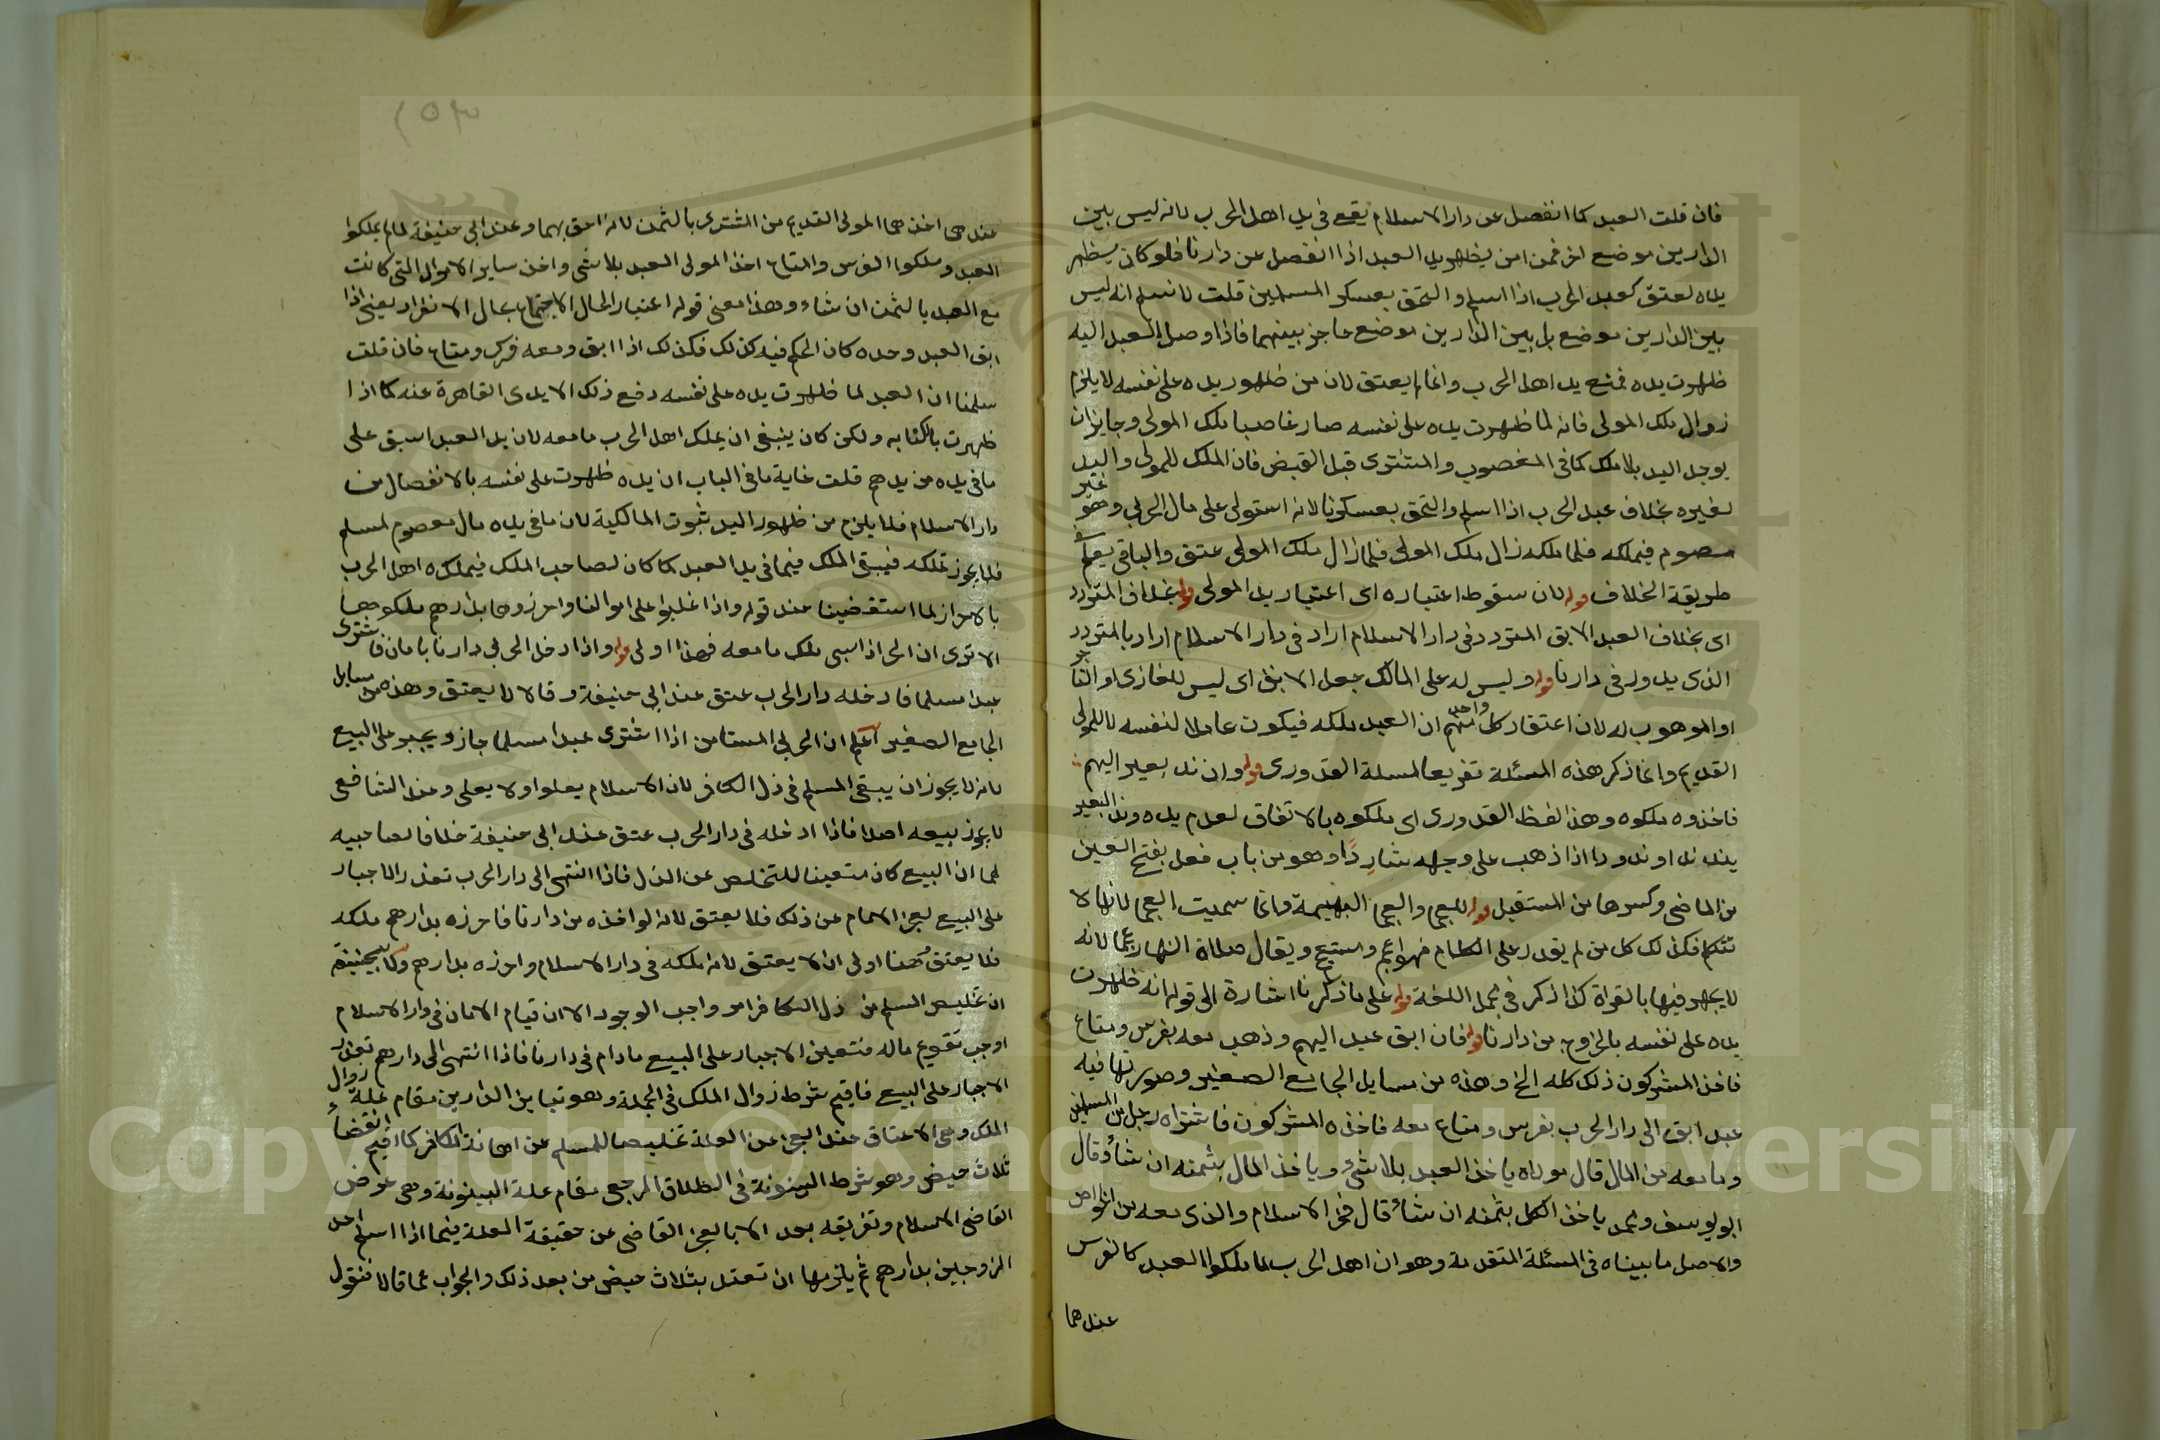 فان قلت العبد كما انفصل عن دار الاسلام يقع في يد اهل الحرب لانه ليس بين
الدارين موضع اخر فمن اين يظهر يد العبد اذا انفصل عن دارنا فلو كان يظهر
يده لعتق كعبد الحرب اذا اسلم والتحق بعسكر المسلمين قلت لا نسلم انه ليس
بين الدارين موضع بل بين الدارين موضع حاجز بينهما فاذا وصل العبد اليه
ظهرت يده فمنع يد اهل الحرب وانما لم يعتق لان من ظهور يده على نفسه لا يلزم
زوال ملك المولى فانه لما ظهرت يده على نفسه صار غاصبا ملك المولى وجايز ان
يوجد اليد بلا ملك كما في المغصوب والمشترى قبل القبض فان الملك للمولى واليد
لغيره بخلاف عبد الحرب اذا اسلم والتحق بعسكرنا لانه استولى على مال الحربي وهو غير
معصوم فيملكه فلما ملكه زال ملك المولى فلما زال ملك المولى عتق والباقي يعلم في
طريقة الخلاف قوله لان سقوط اعتباره اى اعتبار يد المولى قوله بخلاف المتردد
اى بخلاف العبد الابق المتردد في دار الاسلام اراد في دار الاسلام اراد بالمتردد
الذى يدور في دارنا قوله وليس له على المالك جعل الابق اى ليس للغازى او التاجر
او الموهوب له لان اعتقاد كل واحد منهم ان العبد ملكه فيكون عاملا لنفسه لا للمولى
القديم وانما ذكر هذه المسئلة تفريعا لمسلة القدورى قوله وان ند بعير اليهم
فاخذوه ملكوه وهذا لفظ القدورى اى ملكوه بالاتفاق لعدم يده وند البعير
يند ندا وندودا اذا ذهب على وجهه شاردًا وهو من باب فعل بفتح العين
من الماضي وكسرها من المستقبل قوله للعجما والعجما البهيمة وانما سميت العجما لانها لا
تتكلم فكذلك كل من لم يقدر على الكلام فهو اعجم ومستعجم ويقال صلاة النهار عجما لانه
لا يجهر فيها بالقراة كذا ذكر في مجمل اللغة قوله على ما ذكرنا اشارة الى قوله انه ظهرت
يده على نفسه بالخروج من دارنا قوله فان ابق عبد اليهم وذهب معه بفرس ومتاع
فاخذ المشركون ذلك كله الخ وهذه من مسايل الجامع الصغير وصورتها فيه
عبد ابق الى دار الحرب بفرس ومتاع معه فاخذه المشركون فاشتراه رجل من المسلمين
وما معه من المال قال مولاه ياخذ العبد بلا شئ وياخذ المال بثمنه ان شاء وقال
ابو يوسف ومحمد ياخذ الكل بثمنه ان شاء قال فخر الاسلام والذى معه من
والاصل ما بيناه في المسئلة المتقدمة وهو ان اهل الحرب لما ملكوا العبد كالفرس
عندهما
٢٥٣
عندهما اخذهما المولى القديم من المشترى بالثمن لانه احق بهما وعند ابي حنيفة لما لم يملكوا
العبد وملكوا الفرس والمتاع اخذ المولى العبد بلا شئ واخذ ساير الاموال التي كانت
مع العبد بالثمن ان شاء وهذا معنى قوله اعتبار الحال الاجتماع بحال الانفراد يعني اذا
ابق العبد وحده كان الحكم فيه كذلك فكذلك اذا ابق ومعه فرس ومتاع فان قلت
سلمنا ان العبد لما ظهرت يده على نفسه دفع ذلك الايدى القاهرة عنه كما اذا
ظهرت بالكتابه ولكن كان ينبغي ان يملك اهل الحرب ما معه لان يد العبد اسبق على
ما في يده من يدهم قلت غاية ما في الباب ان يده ظهرت على نفسه بالانفصال من
دار الاسلام فلا يلزم من ظهور اليد ثبوت المالكية لان ما في يده مال معصوم لمسلم
فلا يجوز تملكه فيبقى الملك فيما في يد العبد كما كان لصاحب الملك فيملكه اهل الحرب
بالاحراز لما استقضينا عند قوله واذا غلبوا على اموالنا واحرزوها بدارهم ملكوها
الا ترى ان الحر اذا سبى ملك ما معه فهذا اولى قوله واذا دخل الحربي دارنا بامان فاشترى
عبدا مسلما فادخله دار الحرب عتق عند ابي حنيفة وقالا لا يعتق وهذه من مسايل
الجامع الصغير اعلم ان الحربي المستامن اذا اشترى عبدا مسلما جاز ويجبر على البيع
لانه لا يجوز ان يبقى المسلم في ذل الكافر لان الاسلام يعلوا ولا يعلى وعند الشافعي
لا يجوز بيعه اصلا فاذا ادخله في دار الحرب عتق عند ابي حنيفة خلافا لصاحبيه
لهما ان البيع كان متعينا للتخلص عن الذل فاذا انتهى الى دار الحرب تعذر الاجبار
على البيع لعجز الامام عن ذلك فلا يعتق لانه لو اخذه من دارنا فاحرزه بدارهم ملكه
فلا يعتق فهنا اولى ان لا يعتق لانه ملكه في دار الاسلام واحرزه بدارهم ولابي حنيفة
ان تخليص المسلم من ذل الكافر امر واجب الوجود الا ان قيام الامان في دار الاسلام
اوجب تقويم ماله فتعين الاجبار على البيع مادام في دارنا فاذا انتهى الى دارهم تعذر
الاجبار على البيع فاقيم شرط زوال الملك في الجملة وهو تباين الدارين مقام علة زوال
الملك وهي الاعتاق عند العجز عن العلة تخليصا للمسلم عن اهانة الكافر كما اقيم انقضاء
ثلاث حيض وهو شرط البينونة في الطلاق الرجعي مقام علة البينونة وهي عرض
القاضي الاسلام وتفريقه بعد الابا لعجز القاضي عن حقيقة العلة فيما اذا اسلم احد
الزوجين بدارهم ثم يلزمها ان تعتد بثلاث حيض من بعد ذلك والجواب عما قالا فنقول